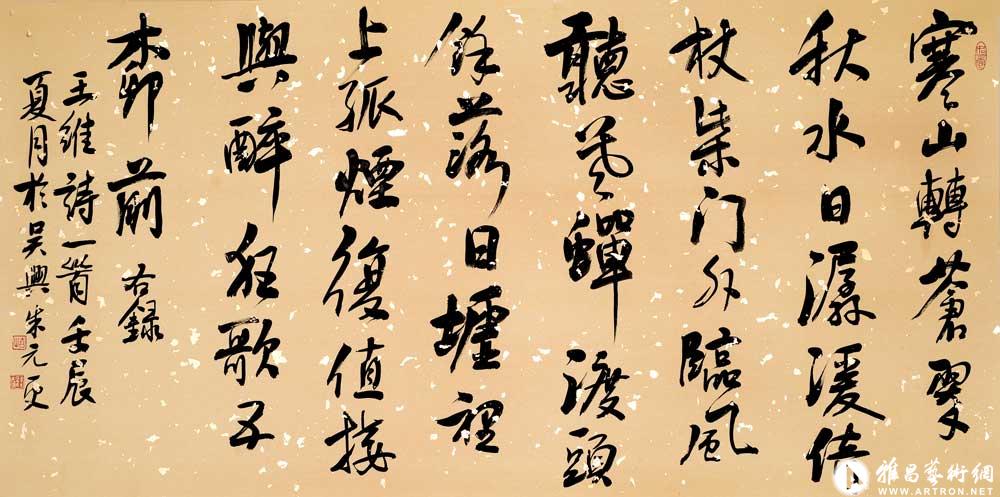 寒山轉蒼翠
秋水日潺湲倚
杖柴门外臨风
聽暮蟬渡頭
餘落日墟裡
上孤煙復值接
輿醉狂歌五
柳前 右録
王維詩一首壬辰
夏月於吳興朱元更
雅昌藝術網
WWW.ARTRON.NET